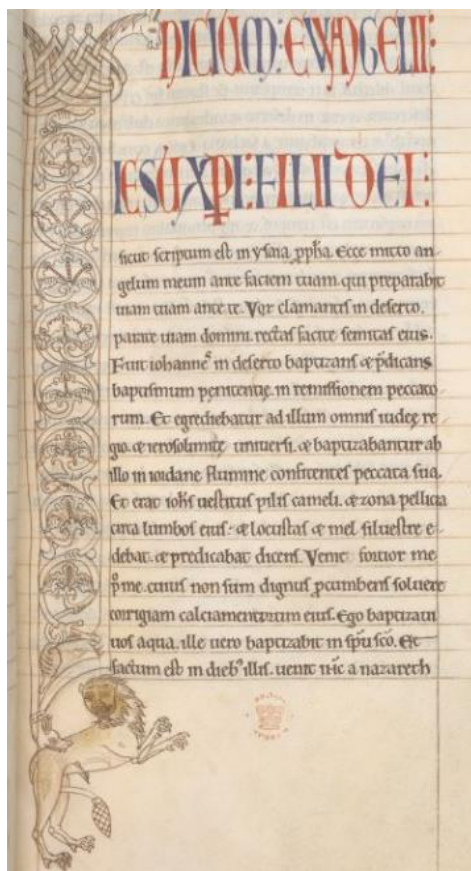 INICIUM: EVANGELII:
IESU XPI: FILII DEI:
sicut scriptum est in ysaia ppha. Ecce mitto an-
gelum meum ante faciem tuam. qui preparabit
uiam tuam ante te. Vox clamantis in deserto.
parate uiam domini. rectas facite semitas eius.
Fuit iohannes in deserto baptizans & pdicans
baptismum penitentie. in remissionem peccato
rum. Et egrediebatur ad illum omnis iudee re
gio. & ierosolimite uniuersi. & baptizabantur ab
illo in iordane flumine confitentes peccata sua.
Et erat iohs uestitus pilis cameli. & zona pellicia
circa lumbos eius: & locustas & mel siluestre e-
debat. & predicabat dicens. Venit fortior me
p me. cuius non sum dignus pcumbens soluere
corrigiam calciamentorum eius. Ego baptizaui
uos aqua. ille uero baptizabit in spu sco. Et
factum est in dieb illis. uenit ihc a nazareth